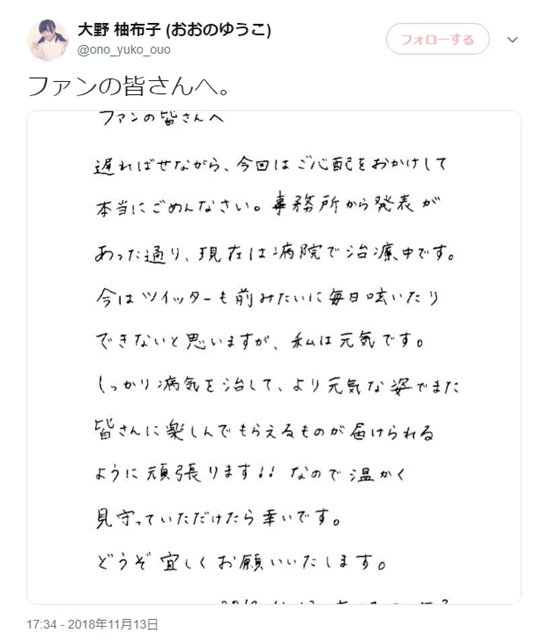 大野 柚布子 (おおのゆうこ)
@ono_yuko_ouo
フォローする
ファンの皆さんへ。
ファンの皆さんへ
遅ればせながら、今回はご心配をおかけして
本当にごめんなさい。事務所から発表が
あった通り、現在は病院で治療中です。
今はツイッターも前みたいに毎日呟いたり
できないと思いますが、私は元気です。
しっかり病気を治して、より元気な姿でまた
皆さんに楽しんでもらえるものが届けられる
ように頑張ります!! なので温かく
見守っていただけたら幸いです。
どうぞ宜しくお願いいたします。
17:34 - 2018年11月13日